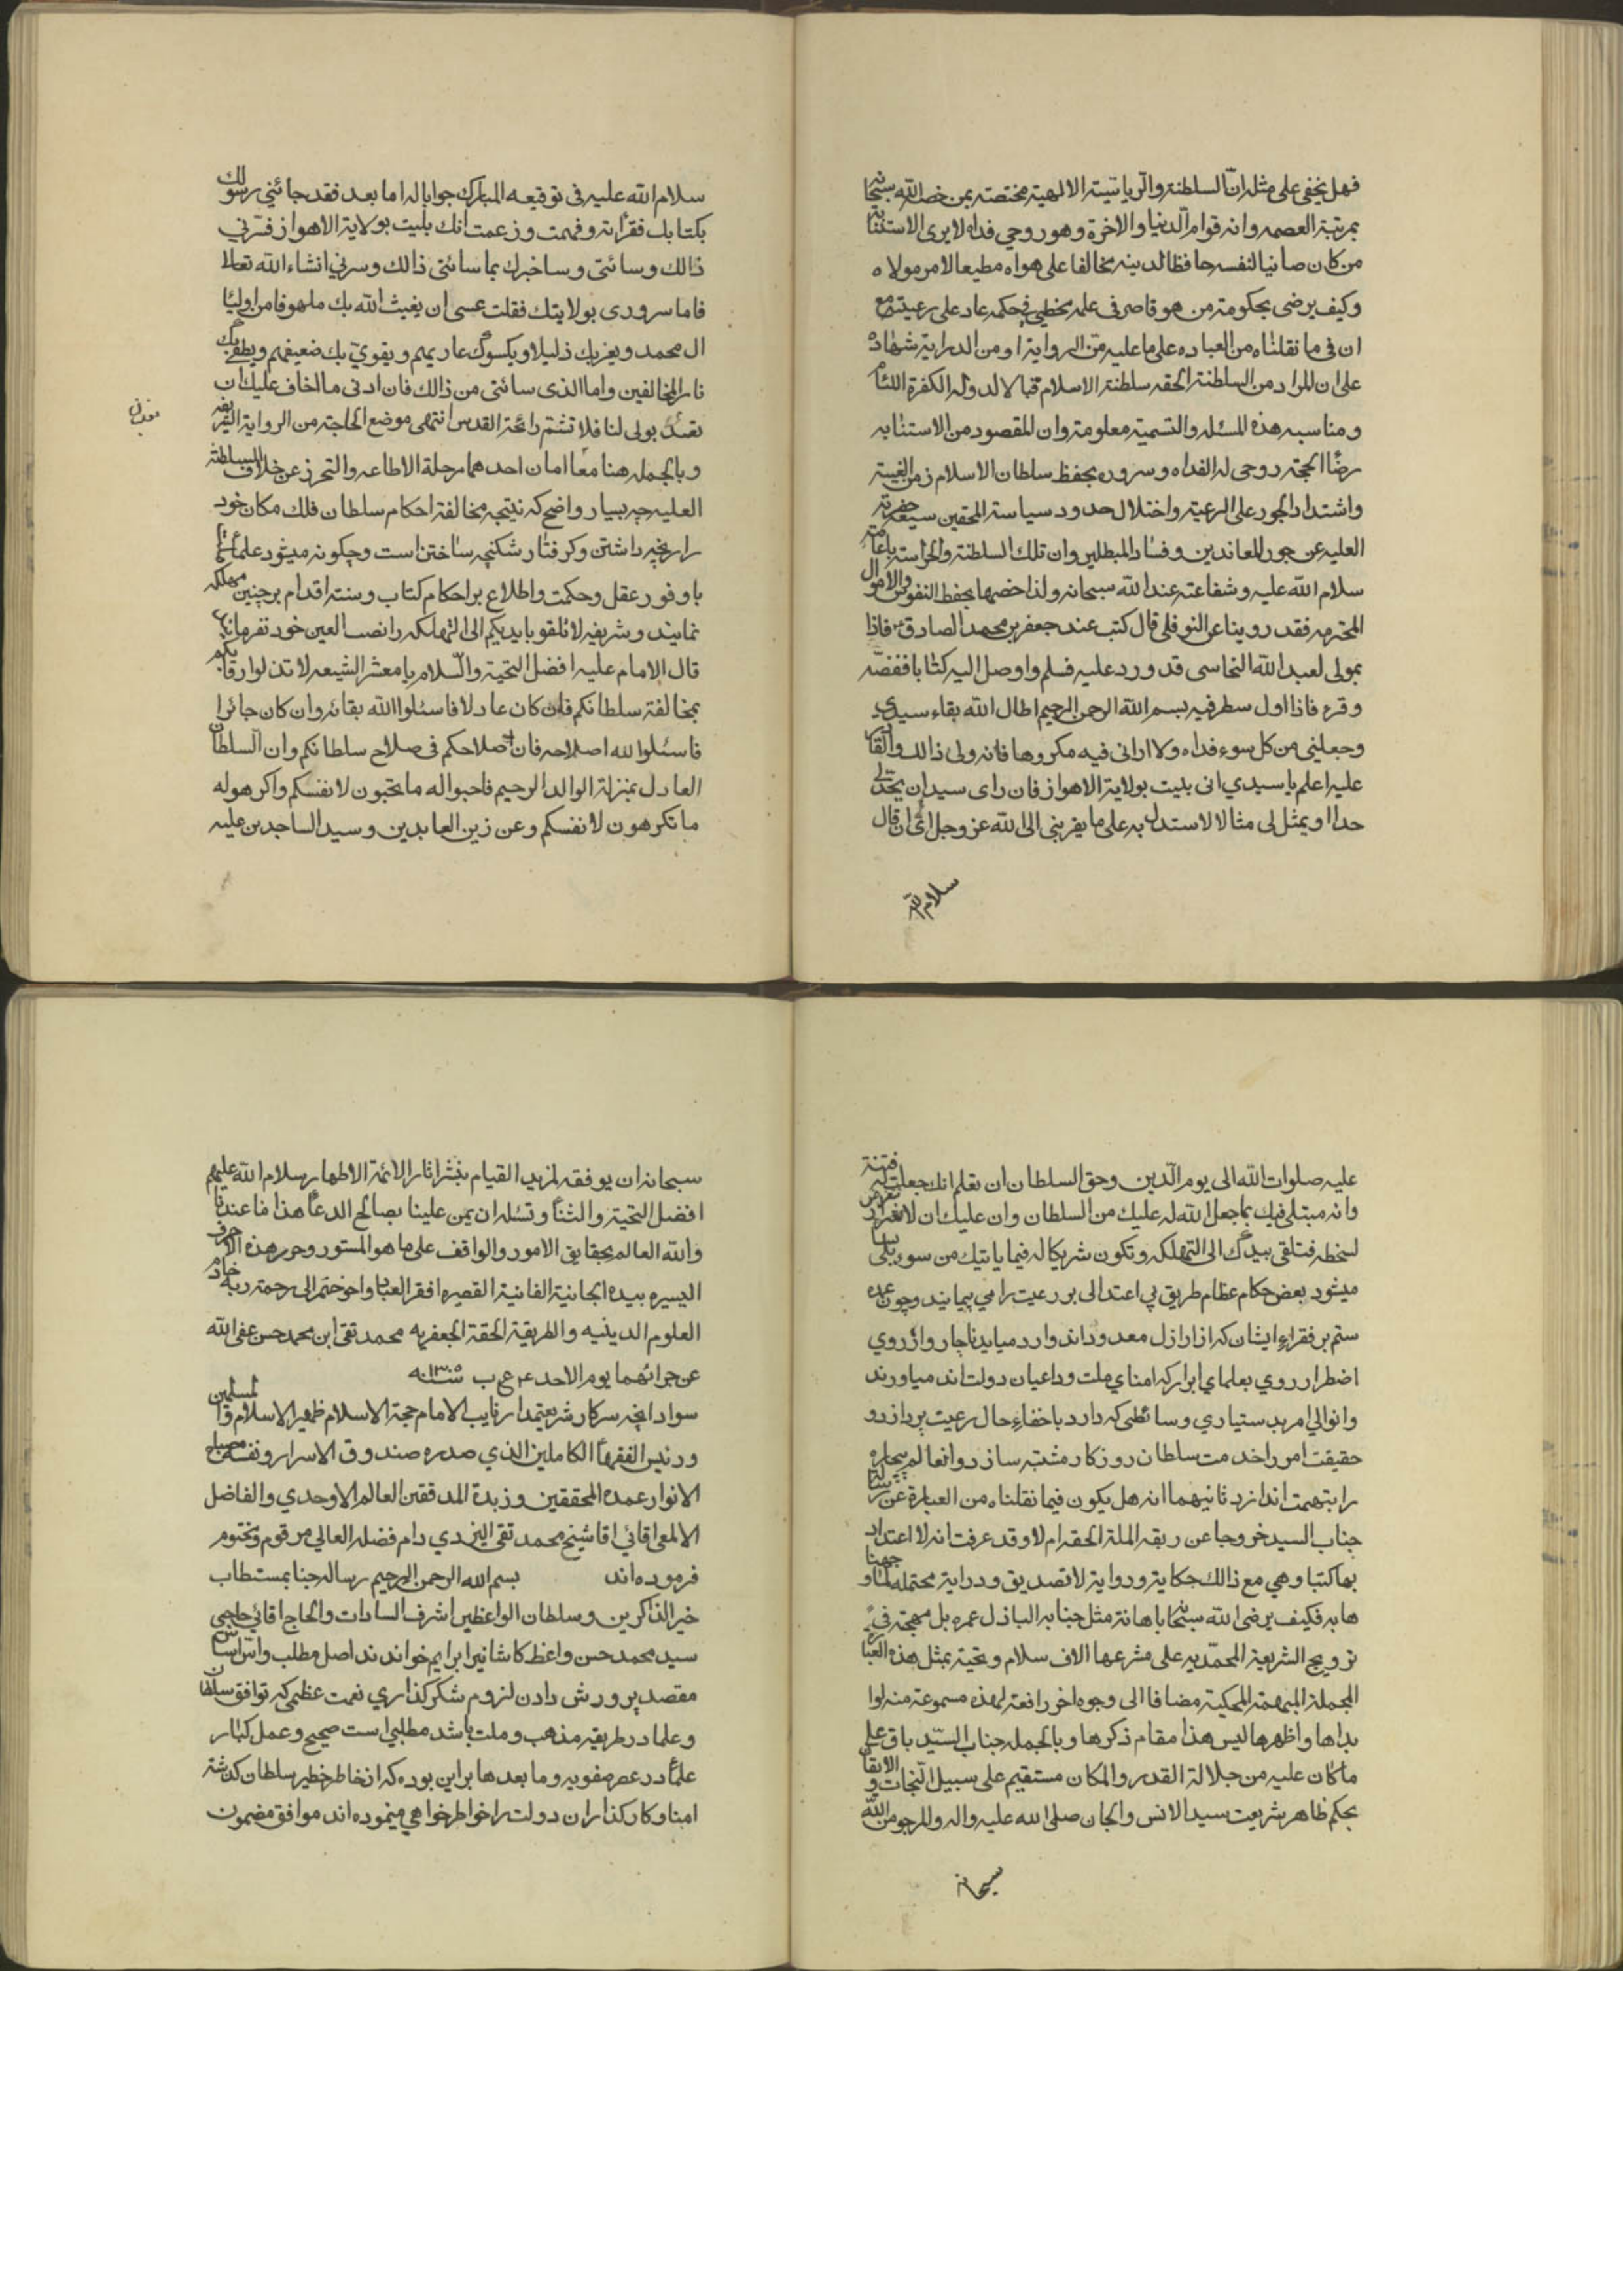 فهل يخفى على مثله انّ السلطنة والرياسة الالهية مختصة بمن خصه الله سبحانه
بمرتبة العصمه وانه قوام الدنيا والاخرة وهو روحي فداه لا يرى الاستنابة
من كان صائنا لنفسه حافظا لدينه مخالفا على هواه مطيعا لامر مولاه
وكيف يرضى بحكومة من هو قاصر في علمه مخطئ في حكمه عاد على رعيته مع
ان في ما نقلناه من العباده على ما عليه من الرواية او من الدراية شهادة
على ان المراد من السلطنة الحقه سلطنة الاسلام قبالا لدولة الكفرة اللئام
ومناسبه هذه المسئله والتسمية معلومة وان المقصود من الاستنابه
رضاء الحجة روحى له الفداه وسروره بحفظ سلطان الاسلام زمن الغيبة
واشتداد الجور على الرعية واختلال حدود سياسة المحقين سيعه حضرته
العليه عن جور المعاندين وفساد المبطلين وان تلك السلطنة والحراسة باعانته
سلام الله عليه وشفاعته عند الله سبحانه ولذا خصها بحفظ النفوس والاموال
المحترمه فقد روينا عن النوفلي قال كنت عند جعفر بن محمد الصادق ع فاذا
بمولى لعبد الله النجاسى قد ورد عليه فسلم واوصل اليه كتابا ففضّه
وقرء فاذا اول سطر فيه بسم الله الرحمن الرحيم اطال الله بقاء سيدي
وجعلني من كل سوء فداه ولا اراني فيه مكروها فانه ولى ذالك والقادر
عليه اعلم يا سيدي انى بليت بولاية الاهواز فان راى سيد ان يحدّ لي
حدا او يمثل لى مثالا لاستدل به على ما يقربنى الى الله عز وجل الى ان قال
سلام الله
سلام الله عليه فى توقيعه المبارك جوابا له اما بعد فقد جائنى رسولك
بكتابك فقرأته وفهمت وزعمت انك بليت بولاية الاهواز فسرّني
ذالك وسائنى وساخبرك بما سائنى ذالك وسرني انشاء الله تعالا
فاما سرورى بولايتك فقلت عسى ان يغيث الله بك ملهوفا من اولياء
ال محمد ويعز بك ذليلا ويكسو بك عاريهم ويقوي بك ضعيفهم ويطفي بك
نار المخالفين واما الذى سائنى من ذالك فان ادنى ما اخاف عليك ان
تعثر بولى لنا فلا تشتم رائحة القدس انتهى موضع الحاجة من الرواية الشريفه
وبالجمله هنا معا امان احدهما مرحلة الاطاعه والتحرز عن خلاف السلطنة
العليه چه بسيار واضح كه نتيجه مخالفة احكام سلطان فلك مكان خود
را رنجه داشتن و كرفتار شكنجه ساختن است وچكونه ميشود علماء ما
با وفور عقل وحكمت واطلاع بر احكام كتاب وسنت اقدام بر چنين مهلكه
نمايند وشريفه لا تلقو بايديكم الى التهلكه را نصب العين خود نفرمايند
قال الامام عليه افضل التحية والسّلام يا معشر الشيعه لا تذلوا رقابكم
بمخالفة سلطانكم فان كان عادلا فاسئلوا الله بقائه وان كان جائرا
فاسئلوا لله اصلاحه فان صلاحكم فى صلاح سلطانكم وان السلطان
العادل بمنزلة الوالد الرحيم فاحبوا له ما تحبون لانفسكم واكرهو له
ما تكرهون لانفسكم وعن زين العابدين وسيد الساجدين عليه
عليه صلوات الله الى يوم الدّين وحق السلطان ان تعلم انك جعلت له فتنة
وانه مبتلى فيك بما جعل الله له عليك من السلطان وان عليك ان لا تعرض
لسخطه فتلقى بيدك الى التهلكه وتكون شريكا له فيما ياتيك من سوء بلى
ميشود بعض حكام عظام طريق بي اعتدالى بر رعيت را مي پيمايند وچون عده
ستم بر فقراء ايشان كه از اراذل معدوداند وارد ميايد ناچار واز روي
اضطرار روي بعلماي ابرار كه امناي ملت وداعيان دولت اند مياورند
وانوالي امر بدستياري وسائطى كه دارد باخفاء حال رعيت پردازد و
حقيقت امر را خدمت سلطان روزكار مشتبه سازد وانعالم بيچاره
را بتهمت اندازد ثانيهما انه هل يكون فيما نقلناه من العبارة عن رسالة
جناب السيد خروجا عن ربقه الملة الحقه ام لا وقد عرفت انه لا اعتداد
بما كتبا وهي مع ذالك حكاية ورواية لا تصديق ودراية محتملة لما و جهنا
ها به فكيف يرضى الله سبحانه باهانة مثل جنابه الباذل عمره بل مهجته في
ترويج الشريعة المحمّديه على مشرعها الاف سلام وتحية بمثل هذه العبارة
المجملة المبهمة المحكية مضافا الى وجوه اخر رافعة لهذه مسموعة منه لوا
بداها واظهرها ليس هذا مقام ذكرها وبالجمله جناب السّيد باق على
ما كان عليه من جلالة القدر والمكان مستقيم على سبيل النّجات والايقان
بحكم ظاهر شريعت سيد الانس والجان صلى الله عليه واله والمرجو من الله
سبحانه
سبحانه ان يوفقه لمزيد القيام بنشر اثار الائمة الاطهار سلام الله عليهم
افضل التحية والثناء وتسئله ان يمن علينا بصالح الدعاء هذا ما عندنا
والله العالم بحقايق الامور والواقف على ما هو المستور وحرر هذه الاحرف
اليسيره بيده الجانية الفانية القصيره افقر العباد واحوجهم الى رحمة ربه خادم
العلوم الدينيه والطريقة الحقة الجعفريه محمد تقى ابن محمد حسن عفى الله
عن جرائمهما يوم الاحد ٤ ع ب سنه ١٣٠٥
سواد انچه سركار شريعتمدار نايب الامام حجة الاسلام ظهير الاسلام والمسلمين
ورئيس الفقهاء الكاملين الذي صدره صندوق الاسرار ونفسه مصباح
الانوار عمدة المحققين وزبدة المدققين العالم الاوحدي والفاضل
الالمعى اقائي اقا شيخ محمد تقى اليزدي دام فضله العالي مرقوم ومختوم
فرموده اند بسم الله الرحمن الرحيم رساله جنابمستطاب
خير الذاكرين وسلطان الواعظين اشرف السادات والحاج اقائي حاجي
سيد محمد حسن واعظ كاشانيرا برايم خواندند اصل مطلب واس اساس
مقصد پرورش دادن لزوم شكر كذاري نعمت عظمى كه توافق سلطان
وعلما در طريقه مذهب وملت باشد مطلبى است صحيح وعمل كبار
علماء در عصر صفويه وما بعدها براين بوده كه از خاطر خطير سلطان كذشته
امنا وكاركذاران دولت را خواطرخواهي مينموده اند موافق مضمون